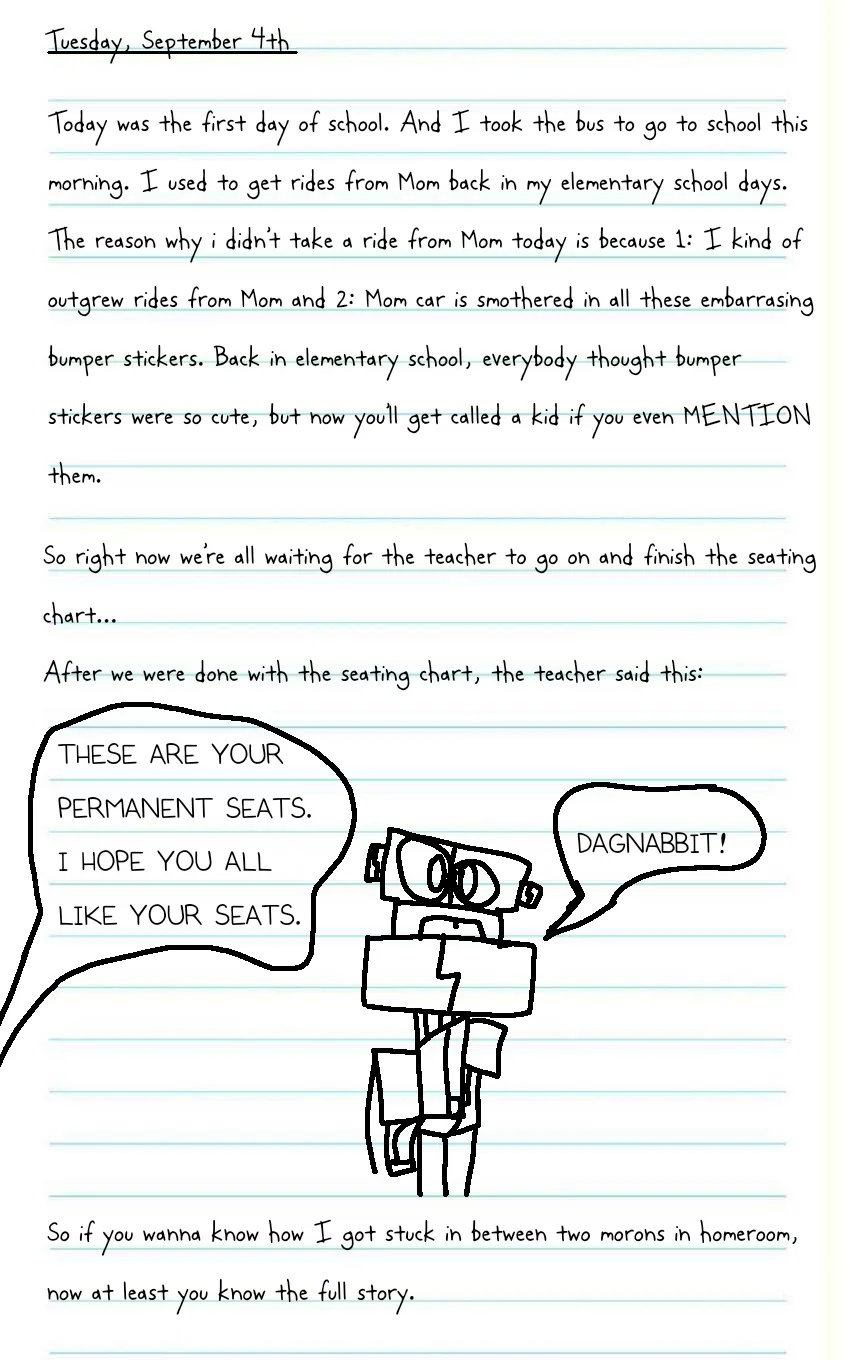 Tuesday, September 4th
Today was the first day of school. And I took the bus to go to school this
morning. I used to get rides from Mom back in my elementary school days.
The reason why i didn't take a ride from Mom today is because 1: I kind of
outgrew rides from Mom and 2: Mom car is smothered in all these embarrasing
bumper stickers. Back in elementary school, everybody thought bumper
stickers were so cute, but now you'll get called a kid if you even MENTION
them.
So right now we're all waiting for the teacher to go on and finish the seating
chart...
After we were done with the seating chart, the teacher said this:
THESE ARE YOUR
PERMANENT SEATS.
I HOPE YOU ALL
LIKE YOUR SEATS.
DAGNABBIT!
So if you wanna know how I got stuck in between two morons in homeroom,
now at least you know the full story.